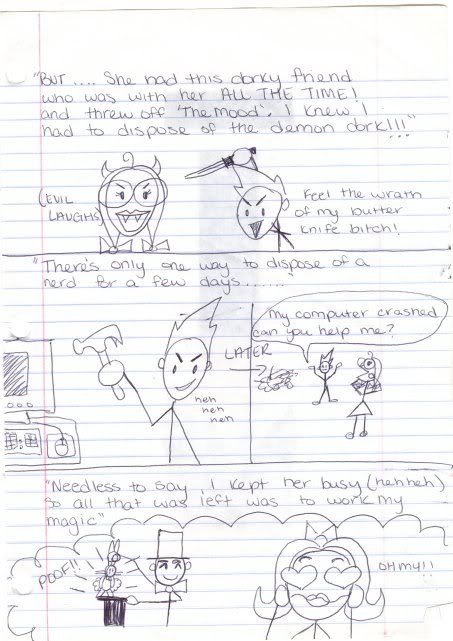 "BUT .... She had this dorky friend
who was with her ALL THE TIME!
and threw off 'The mood'. I knew I
had to dispose of the demon dork!!!"
(EVIL
LAUGHS)
Feel the wrath
of my butter
knife bitch!
"There's only one way to dispose of a
nerd for a few days......."
heh
heh
heh
LATER
My computer crashed
can you help me?
"Needless to say I kept her busy (heh heh)
So all that was left was to work my
magic"
POOF!!
OH MY!!